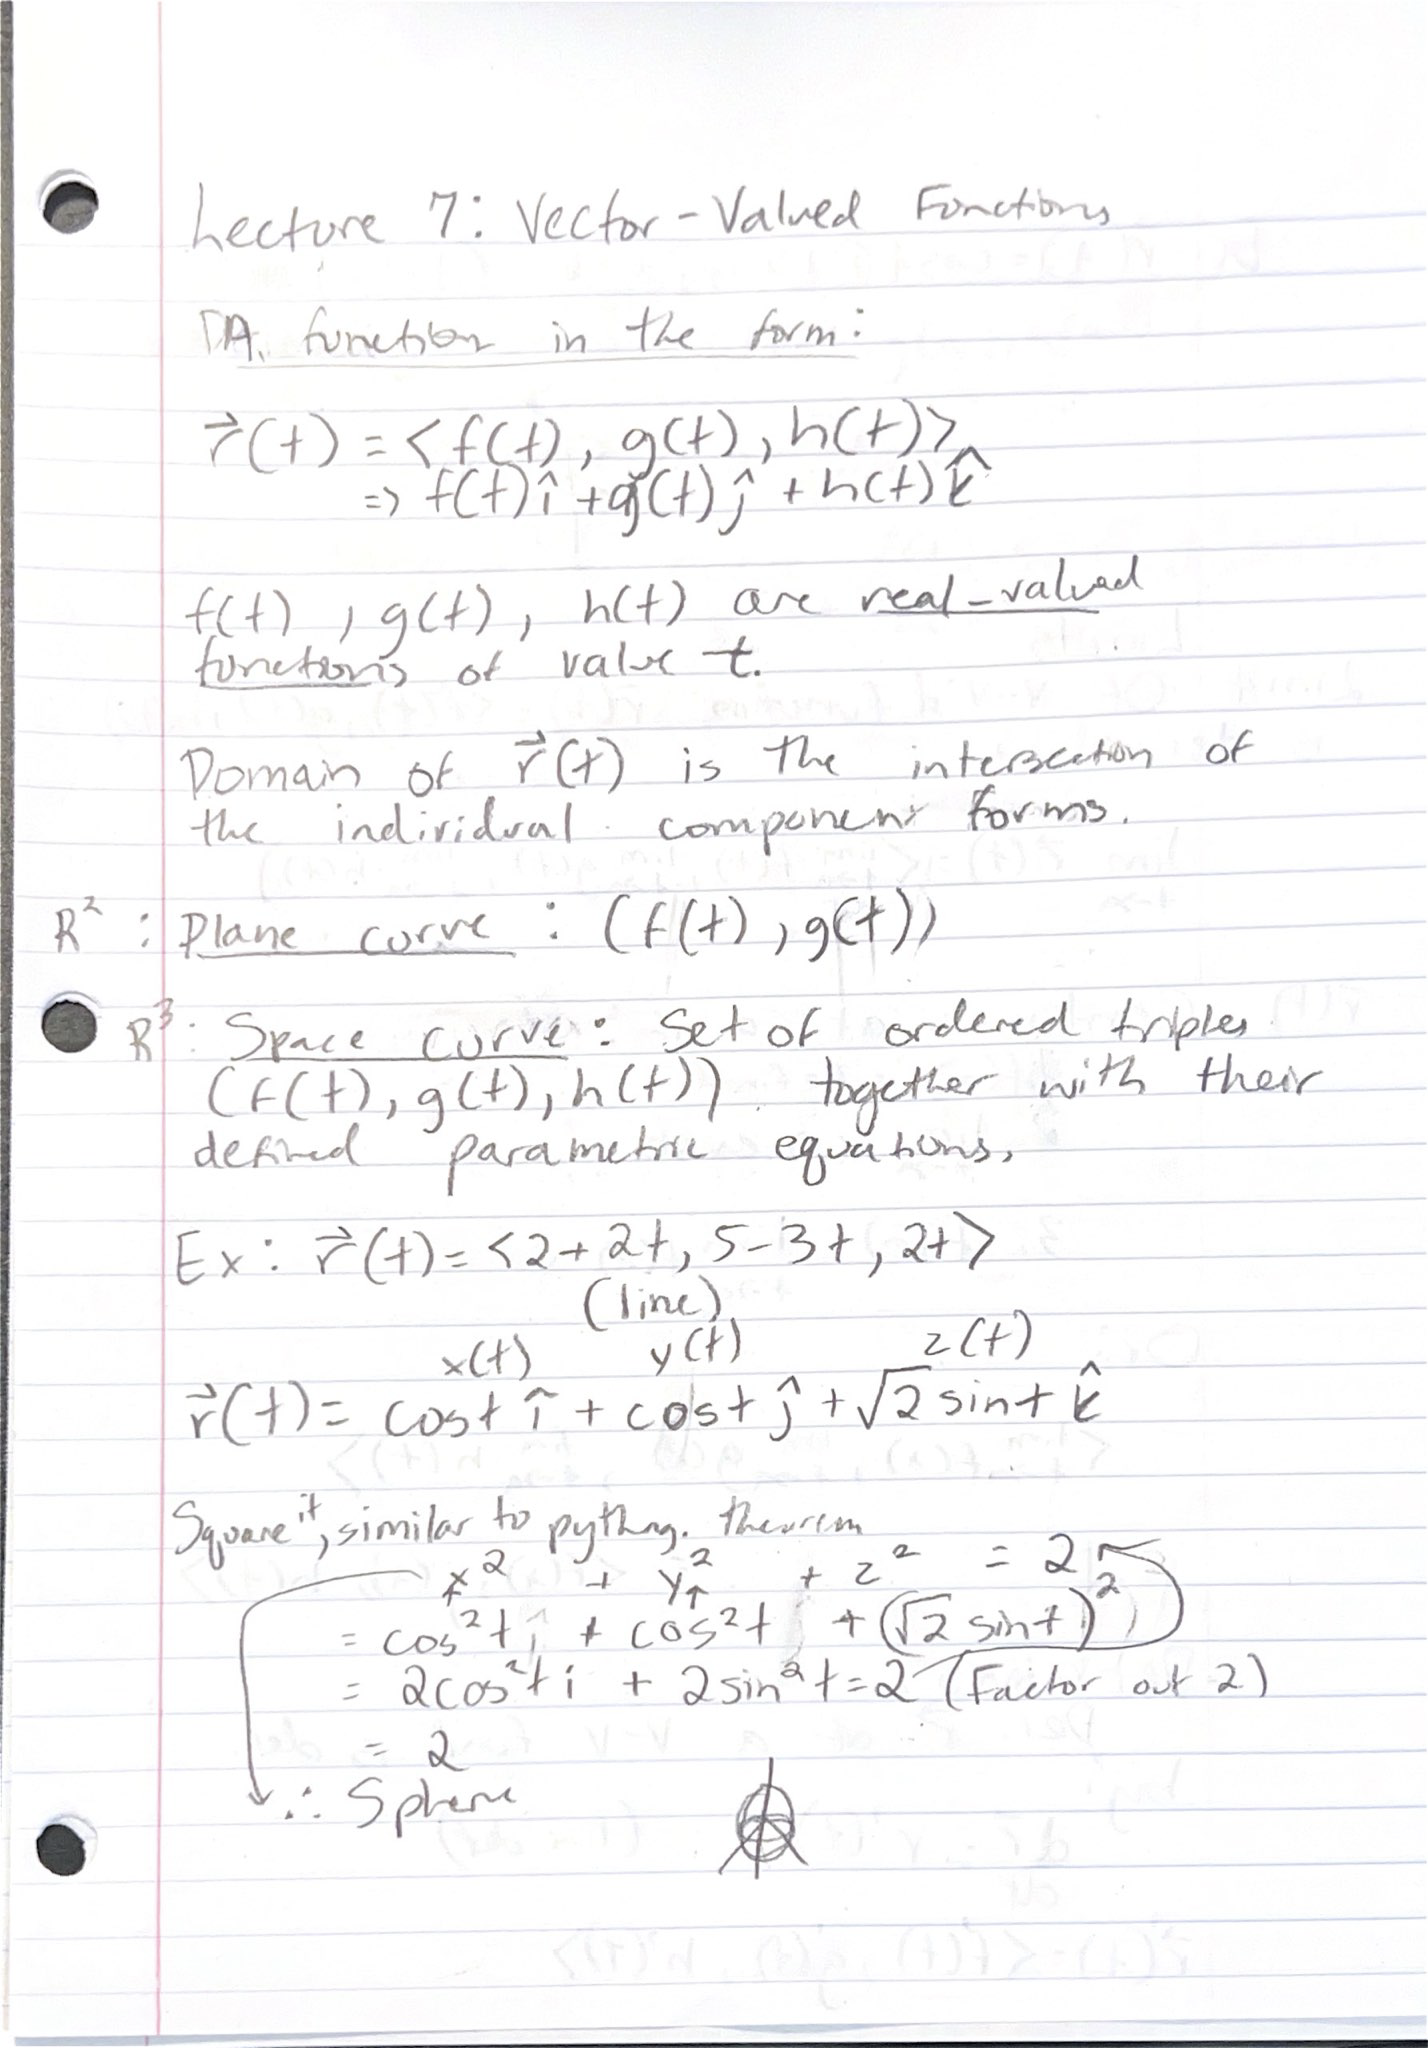 Lecture 7: Vector-Valued Functions
A function in the form:
r⃗(t) = <f(t), g(t), h(t)>
=> f(t)î + g(t)ĵ + h(t)k̂
f(t), g(t), h(t) are real-valued
functions of value t.
Domain of r⃗(t) is the intersection of
the individual component forms.
R² : Plane curve : (f(t), g(t))
R³ : Space curve : Set of ordered triples
(f(t), g(t), h(t)) together with their
defined parametric equations.
Ex: r⃗(t) = <2+2t, 5-3t, 2t>
(line)
x(t) y(t) z(t)
r⃗(t) = cost î + cost ĵ + √2 sint k̂
Square it, similar to pythag. theorem
x² + y² + z² = 2
= cos²t i + cos²t + (√2 sint)²
= 2cos²t i + 2sin²t = 2 (Factor out 2)
= 2
∴ Sphere